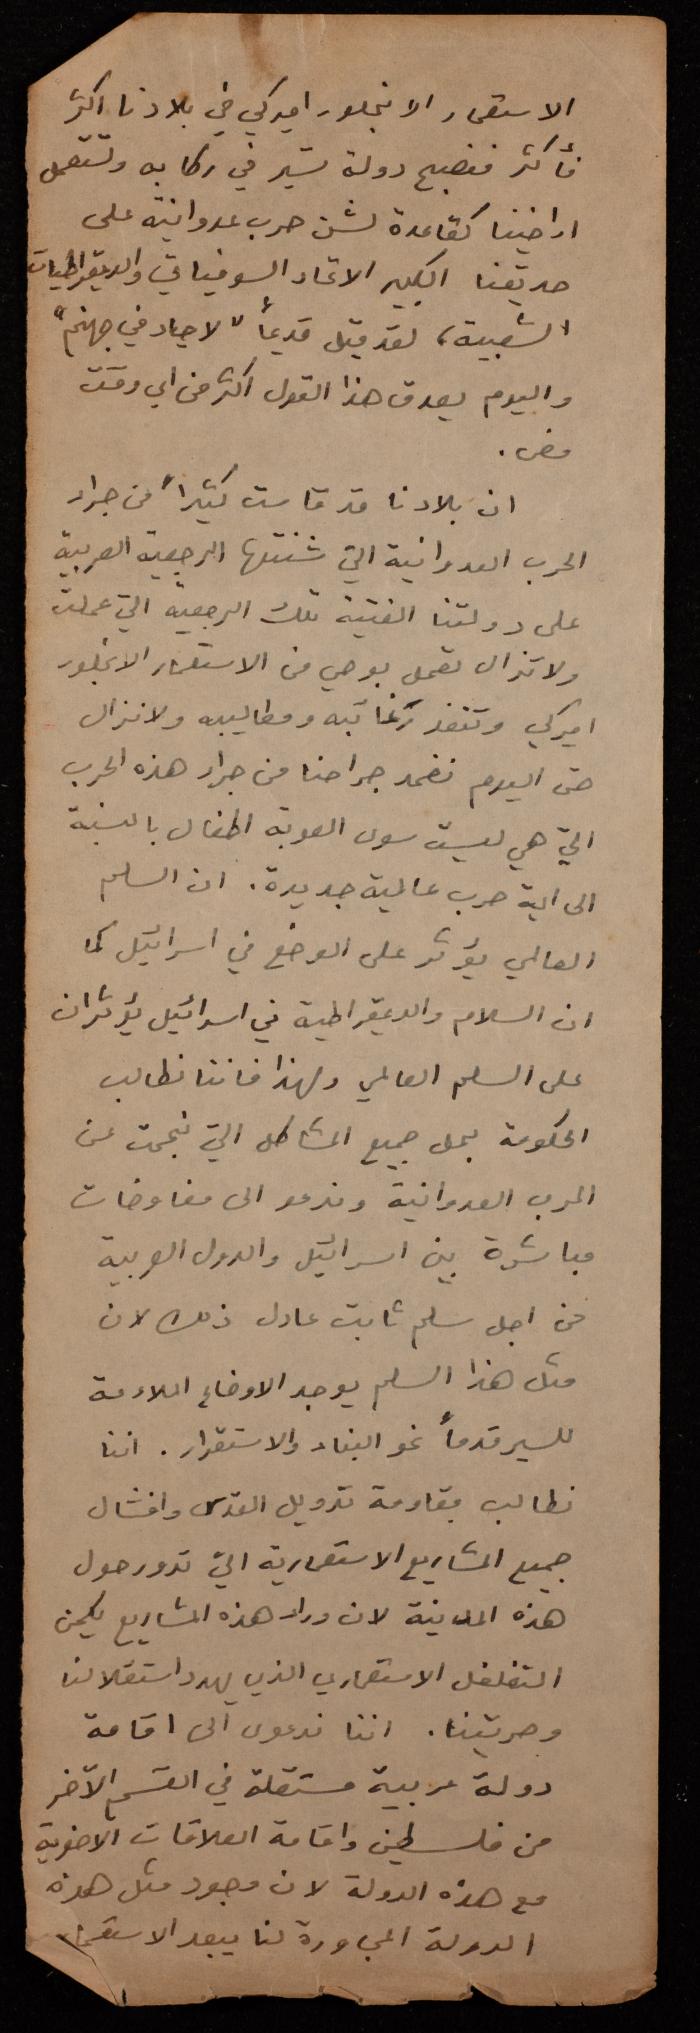 الاستعمار الانجلور اميركي في بلادنا اكثر
فأكثر فنصبح دولة تسير في ركابه وتستعمل
اراضينا كقاعدة لشن حرب عدوانية على
صديقنا الكبير الاتحاد السوفياتي والديمقراطيات
الشعبية، لقد قيل قديماً "لا حياد في جهنم"
واليوم يصدق هذا القول اكثر من اي وقت
مضى.
ان بلادنا قد قاست كثيراً من جراء
الحرب العدوانية التي شنتها الرجعية العربية
على دولتنا الفتية تلك الرجعية التي عملت
ولا تزال تعمل بوحي من الاستعمار الانجلور
اميركي وتنفذ رغباته ومطاليبه ولا نزال
حتى اليوم نضمد جراحنا من جراء هذه الحرب
التي هي ليست سوى العوبة اطفال بالنسبة
الى اية حرب عالمية جديدة. ان السلم
العالمي يؤثر على الوضع في اسرائيل كما
ان السلام والديمقراطية في اسرائيل يؤثران
على السلم العالمي ولهذا فاننا نطالب
الحكومة بحل جميع المشاكل التي نجمت عن
الحرب العدوانية وندعو الى مفاوضات
مباشرة بين اسرائيل والدول العربية
من اجل سلم ثابت عادل ذلك لان
مثل هذا السلم يوجد الاوضاع الملاءمة
للسير قدماً نحو البناء والاستقرار. اننا
نطالب بمقاومة تدويل القدس وافشال
جميع المشاريع الاستعمارية التي تدور حول
هذه المدينة لان وراء هذه المشاريع يكمن
التغلغل الاستعماري الذي يهدد استقلالنا
وحريتنا. اننا ندعوى الى اقامة
دولة عربية مستقلة في القسم الآخر
من فلسطين واقامة العلاقات الاخوية
مع هذه الدولة لان وجود مثل هذه
الدولة المجاورة لنا يبعد الاستعمار